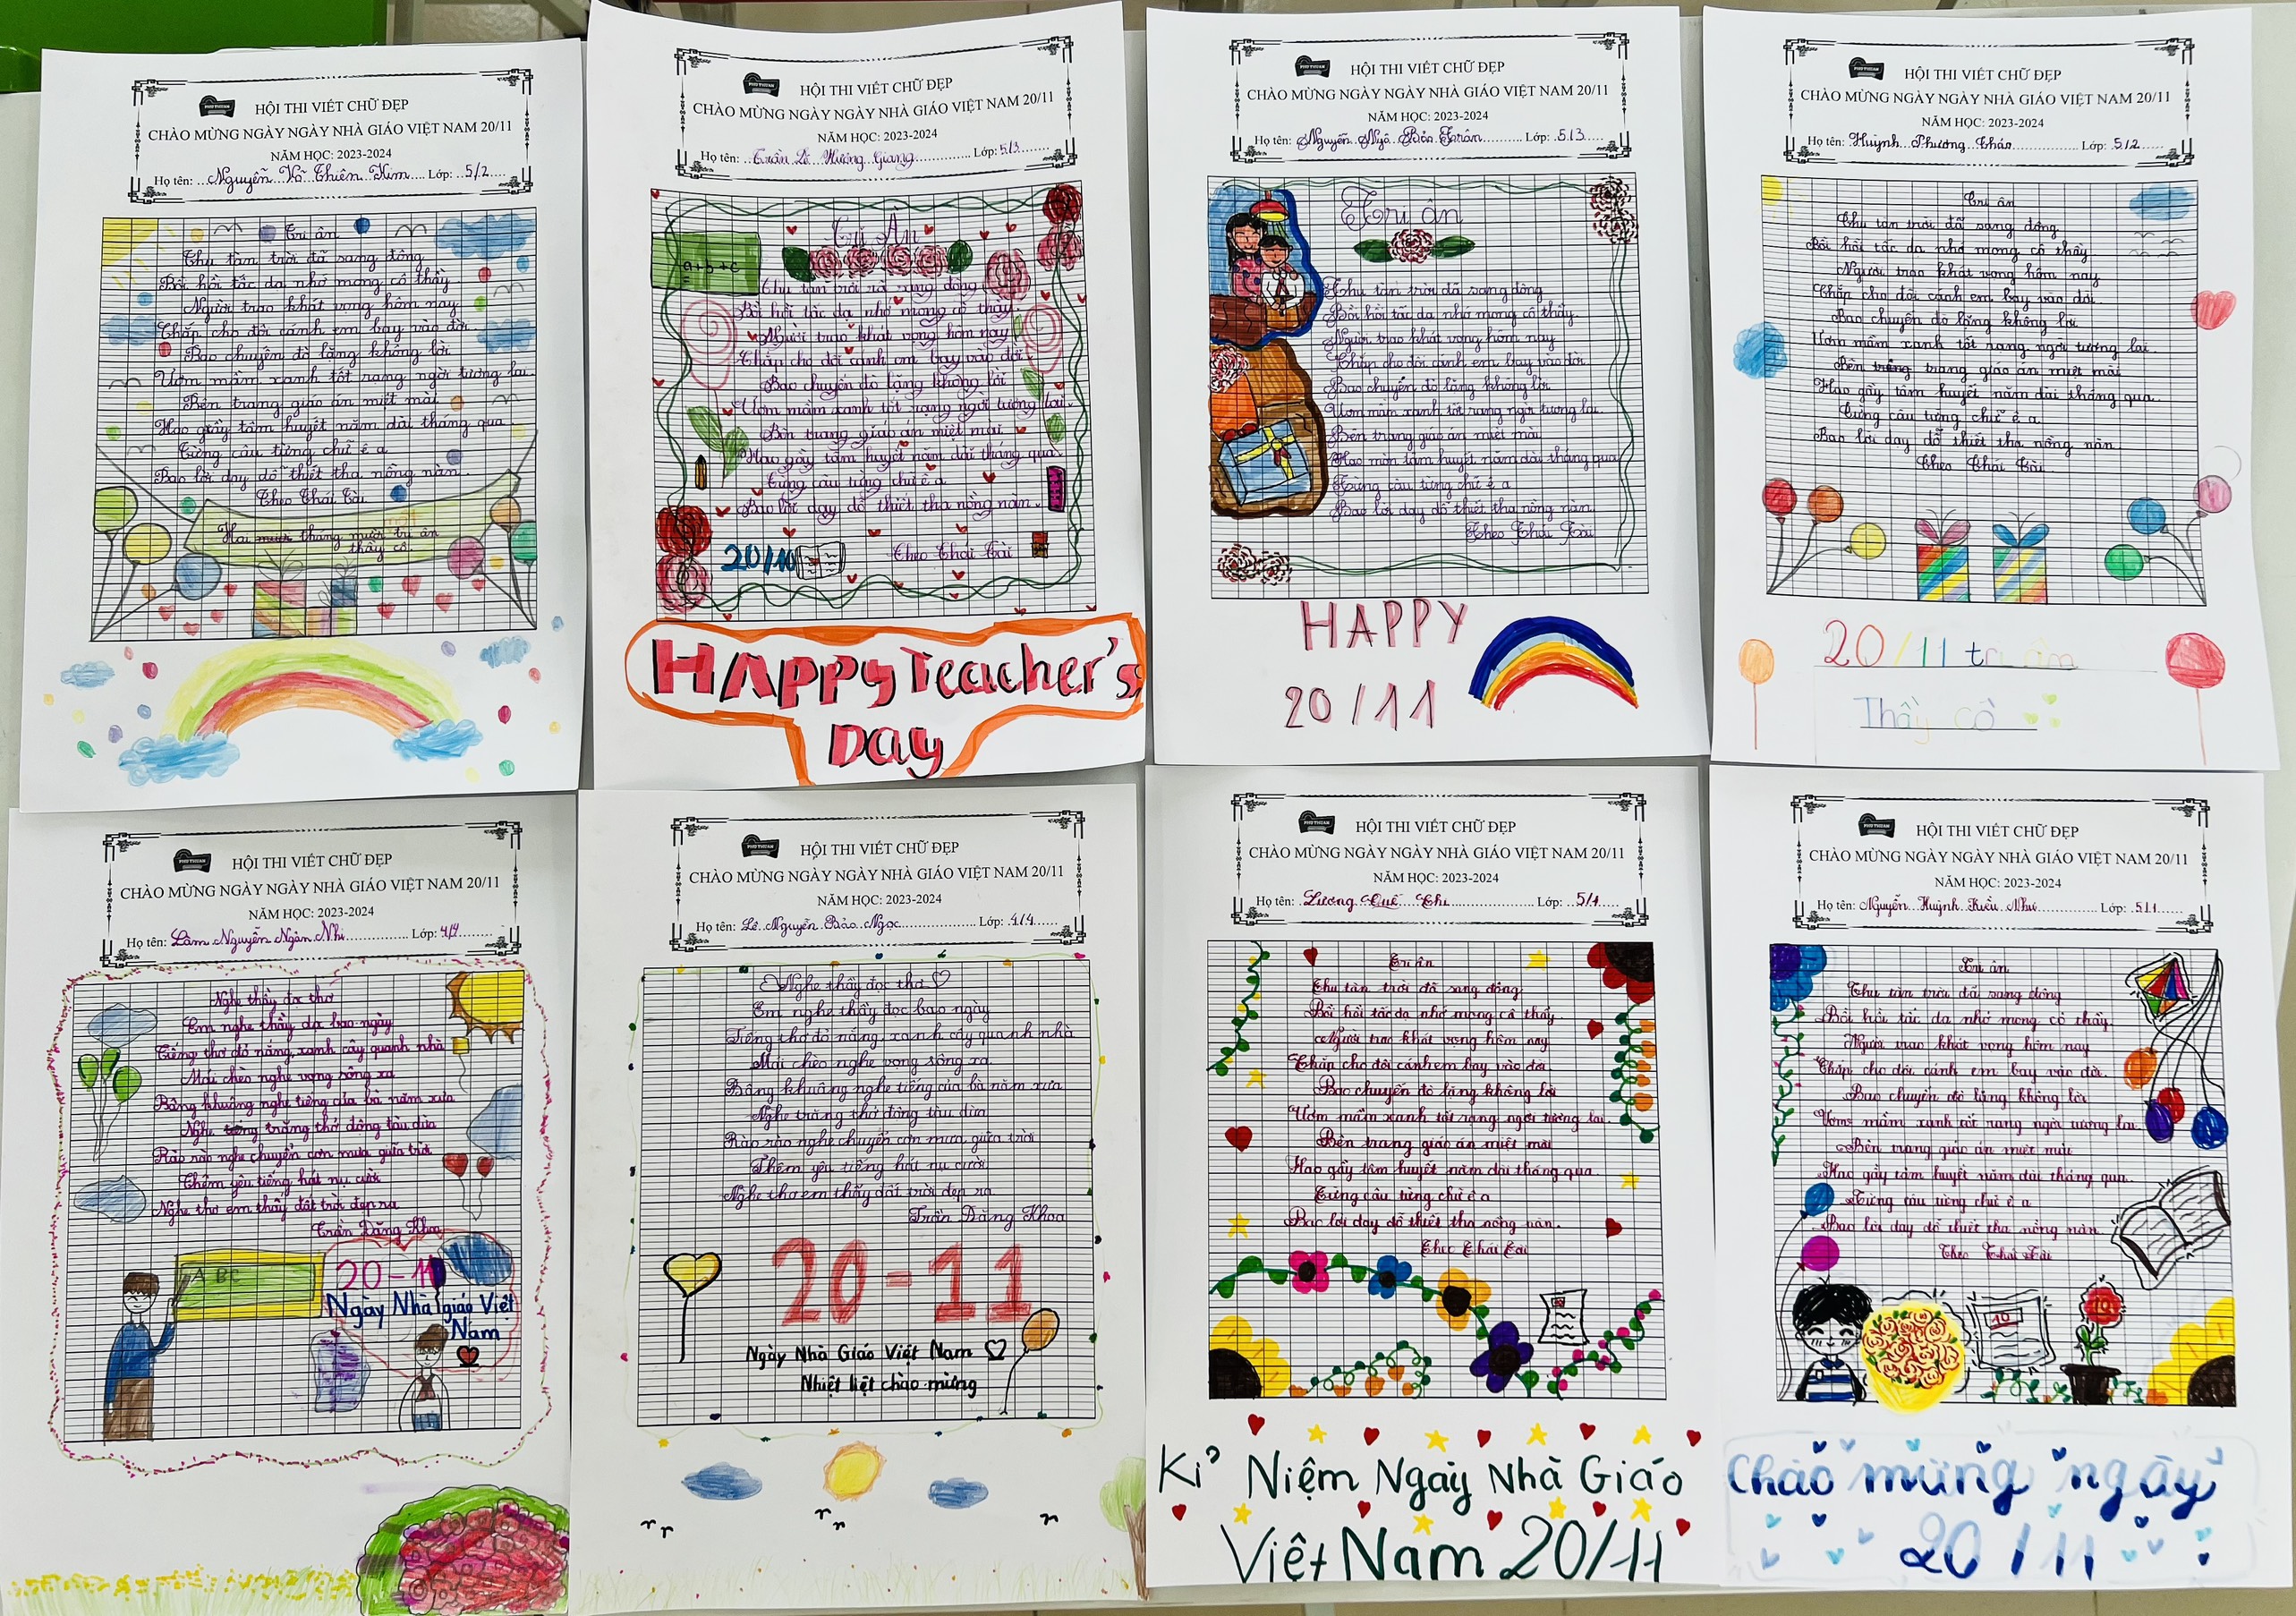 PHÚ THUẬN
HỘI THI VIẾT CHỮ ĐẸP
CHÀO MỪNG NGÀY NGÀY NHÀ GIÁO VIỆT NAM 20/11
NĂM HỌC: 2023-2024
Họ tên: Nguyễn Võ Thiên Kim Lớp: 5/2
Tri ân
Thu tàn trời đã sang đông
Bồi hồi tấc dạ nhớ mong cô thầy
Người trao khát vọng hôm nay
Chắp cho đôi cánh em bay vào đời
Bao chuyến đò lặng không lời
Ươm mầm xanh tốt rạng ngời tương lai
Bên trang giáo án miệt mài
Hao gầy tâm huyết năm dài tháng qua
Từng câu từng chữ ê a
Bao lời dạy dỗ thiết tha nồng nàn.
Theo Thái Tài
Hai mươi tháng mười tri ân
thầy cô
HỘI THI VIẾT CHỮ ĐẸP
CHÀO MỪNG NGÀY NGÀY NHÀ GIÁO VIỆT NAM 20/11
NĂM HỌC: 2023-2024
Họ tên: Trần Lê Hương Giang Lớp: 5/3
Tri Ân
a+b+c
=
Thu tàn trời đã sang đông
Bồi hồi tấc dạ nhớ mong cô thầy
Người trao khát vọng hôm nay
Chắp cho đôi cánh em bay vào đời
Bao chuyến đò lặng không lời
Ươm mầm xanh tốt rạng ngời tương lai
Bên trang giáo án miệt mài
Hao gầy tâm huyết năm dài tháng qua
Từng câu từng chữ ê a
Bao lời dạy dỗ thiết tha nồng nàn.
20/11
Theo Thái Tài
HAPPY Teacher's
DAy
HỘI THI VIẾT CHỮ ĐẸP
CHÀO MỪNG NGÀY NGÀY NHÀ GIÁO VIỆT NAM 20/11
NĂM HỌC: 2023-2024
Họ tên: Nguyễn Ngô Bảo Trân Lớp: 5/3
Tri ân
Thu tàn trời đã sang đông
Bồi hồi tấc dạ nhớ mong cô thầy.
Người trao khát vọng hôm nay
Chắp cho đôi cánh em bay vào đời
Bao chuyến đò lặng không lời
Ươm mầm xanh tốt rạng ngời tương lai.
Bên trang giáo án miệt mài
Hao mòn tâm huyết năm dài tháng qua
Từng câu từng chữ ê a
Bao lời dạy dỗ thiết tha nồng nàn.
Theo Thái Tài
HAPPY
20/11
HỘI THI VIẾT CHỮ ĐẸP
CHÀO MỪNG NGÀY NGÀY NHÀ GIÁO VIỆT NAM 20/11
NĂM HỌC: 2023-2024
Họ tên: Huỳnh Phương Thảo Lớp: 5/2
Tri ân
Thu tàn trời đã sang đông
Bồi hồi tấc dạ nhớ mong cô thầy
Người trao khát vọng hôm nay
Chắp cho đôi cánh em bay vào đời
Bao chuyến đò lặng không lời
Ươm mầm xanh tốt rạng ngời tương lai.
Bên trang giáo án miệt mài
Hao gầy tâm huyết năm dài tháng qua
Từng câu từng chữ ê a
Bao lời dạy dỗ thiết tha nồng nàn
Theo Thái Tài
20/11 tri ân
Thầy cô
PHÚ THUẬN
HỘI THI VIẾT CHỮ ĐẸP
CHÀO MỪNG NGÀY NGÀY NHÀ GIÁO VIỆT NAM 20/11
NĂM HỌC: 2023-2024
Họ tên: Lâm Nguyễn Ngân Nhi Lớp: 4/4
Nghe thầy đọc thơ
Em nghe thầy đọc bao ngày
Tiếng thơ đỏ nắng, xanh cây quanh nhà
Mái chèo nghe vọng sông xa
Bâng khuâng nghe tiếng của bà năm xưa
Nghe trăng thở động tàu dừa
Rào rào nghe chuyển cơn mưa giữa trời
Thêm yêu tiếng hát nụ cười
Nghe thơ em thấy đất trời đẹp ra
Trần Đăng Khoa
A BC
20-11
Ngày Nhà giáo Việt
Nam
HỘI THI VIẾT CHỮ ĐẸP
CHÀO MỪNG NGÀY NGÀY NHÀ GIÁO VIỆT NAM 20/11
NĂM HỌC: 2023-2024
Họ tên: Lê Nguyễn Bảo Ngọc Lớp: 4/4
Nghe thầy đọc thơ
Em nghe thầy đọc bao ngày
Tiếng thơ đỏ nắng, xanh cây quanh nhà
Mái chèo nghe vọng sông xa
Bâng khuâng nghe tiếng của bà năm xưa
Nghe trăng thở động tàu dừa
Rào rào nghe chuyển cơn mưa giữa trời
Thêm yêu tiếng hát nụ cười
Nghe thơ em thấy đất trời đẹp ra
Trần Đăng Khoa
20-11
Ngày Nhà Giáo Việt Nam
Nhiệt liệt chào mừng
PHÚ THUẬN
HỘI THI VIẾT CHỮ ĐẸP
CHÀO MỪNG NGÀY NGÀY NHÀ GIÁO VIỆT NAM 20/11
NĂM HỌC: 2023-2024
Họ tên: Lương Quế Chi Lớp: 5/1
Tri ân
Thu tàn trời đã sang đông
Bồi hồi tấc dạ nhớ mong cô thầy.
Người trao khát vọng hôm nay
Chắp cho đôi cánh em bay vào đời
Bao chuyến đò lặng không lời
Ươm mầm xanh tốt rạng ngời tương lai.
Bên trang giáo án miệt mài
Hao gầy tâm huyết năm dài tháng qua.
Từng câu từng chữ ê a
Bao lời dạy dỗ thiết tha nồng nàn.
Theo Thái Tài
Kỉ Niệm Ngày Nhà Giáo
Việt Nam 20/11
PHÚ THUẬN
HỘI THI VIẾT CHỮ ĐẸP
CHÀO MỪNG NGÀY NGÀY NHÀ GIÁO VIỆT NAM 20/11
NĂM HỌC: 2023-2024
Họ tên: Nguyễn Huỳnh Kiều Như Lớp: 5/1
Tri ân
Thu tàn trời đã sang đông
Bồi hồi tấc dạ nhớ mong cô thầy.
Người trao khát vọng hôm nay
Chắp cho đôi cánh em bay vào đời.
Bao chuyến đò lặng không lời
Ươm mầm xanh tốt rạng ngời tương lai.
Bên trang giáo án miệt mài
Hao gầy tâm huyết năm dài tháng qua.
Từng câu từng chữ ê a
Bao lời dạy dỗ thiết tha nồng nàn.
Theo Thái Tài
10
10
Chào mừng ngày
20/11